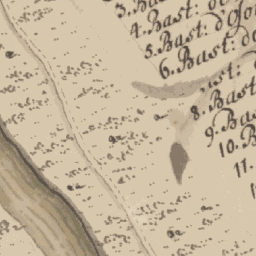 3. Bast
4. Bast: d
5. Bast: d'So
6. Bast: de
ist: d
8. Bast
9. Ba
10. B
11.
12